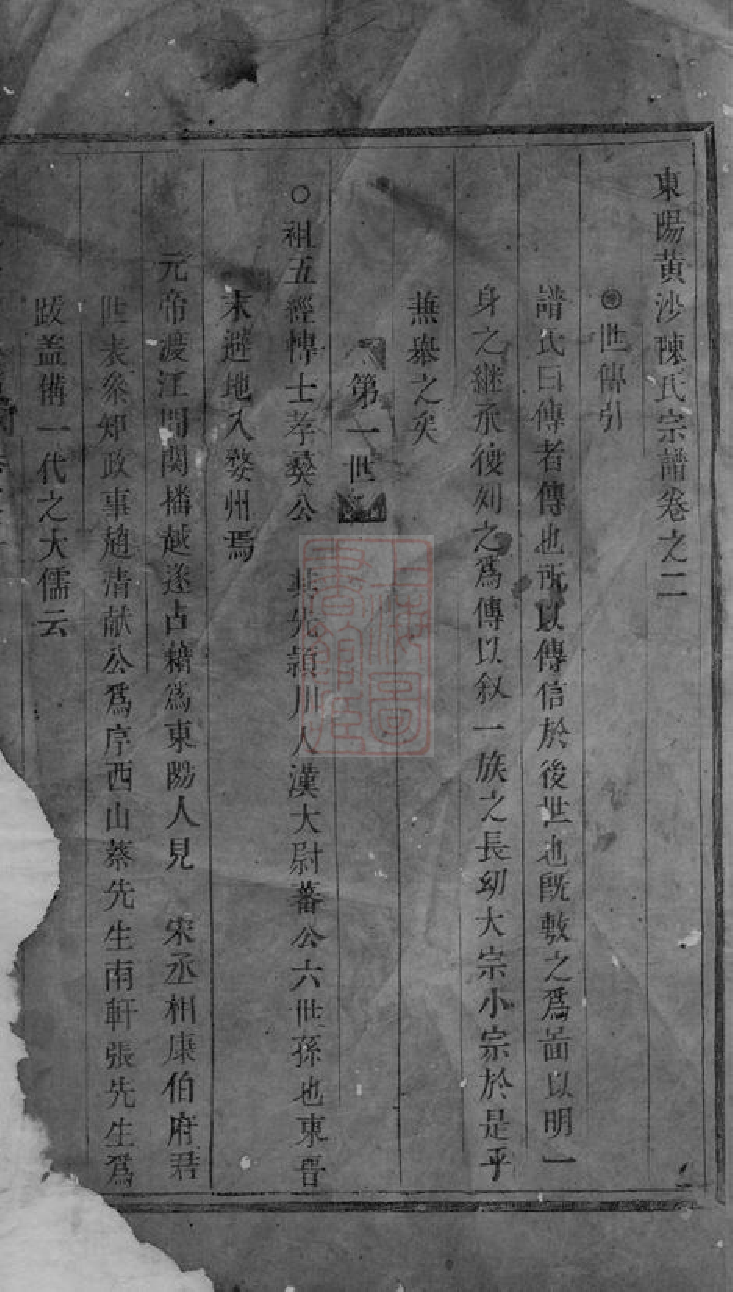 東陽黄沙陳氏宗譜卷之二
世傳引
譜氏曰傳者傳也所以傳信於後世也既敷之爲啚以明一
身之繼承復列之爲傳以叙一族之長幼大宗小宗於是乎
無舉之矣
第一世
○祖五經博士孝燊公 其先潁川人漢大尉蕃公六世孫也東晋
末避地入婺州焉
元帝渡江間関播越遂占籍爲東陽人見 宋丞相康伯府君
世表叅知政事趙清献公爲序西山蔡先生南軒張先生爲
跋盖偹一代之大儒云
上海圖書館藏